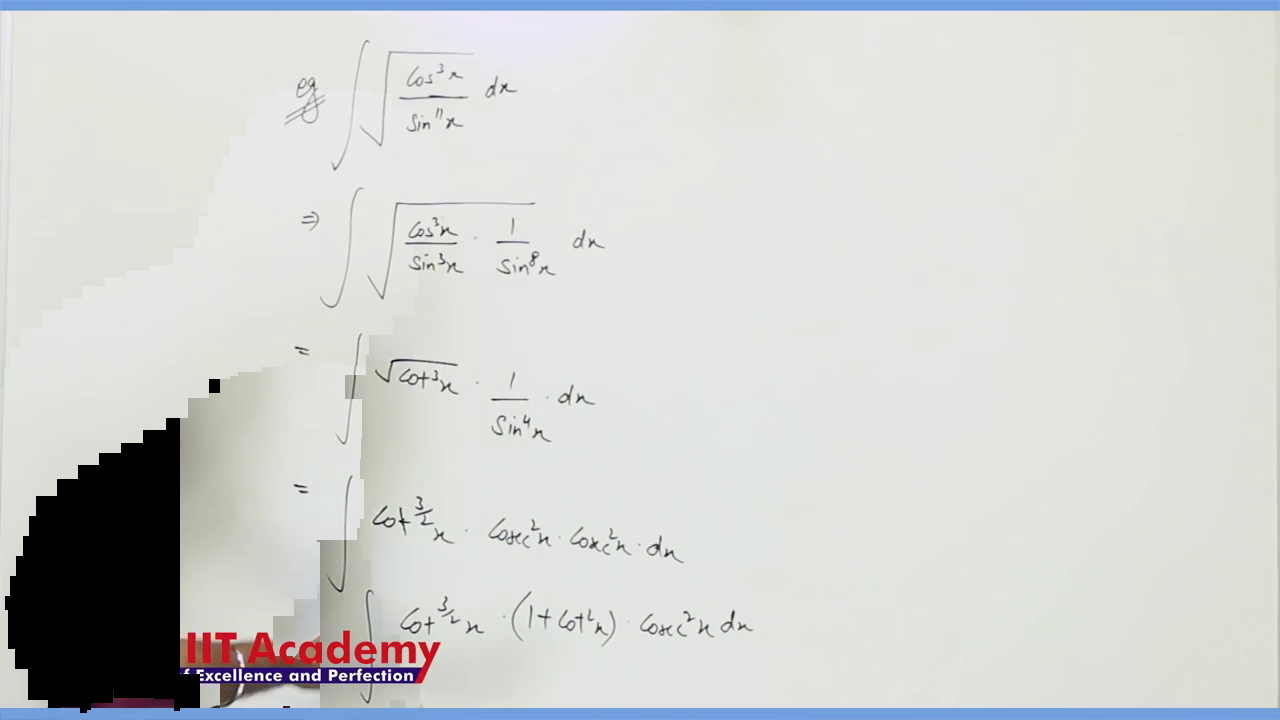 eg ∫ √(cos³x / sin¹¹x) dx
⇒ ∫ √(cos³x / sin³x · 1 / sin⁸x) dx
= ∫ √cot³x · 1 / sin⁴x · dx
= ∫ cot^(3/2) x · cosec²x · cosec²x · dx
∫ cot^(3/2) x · (1 + cot²x) · cosec²x dx
IIT Academy
f Excellence and Perfection